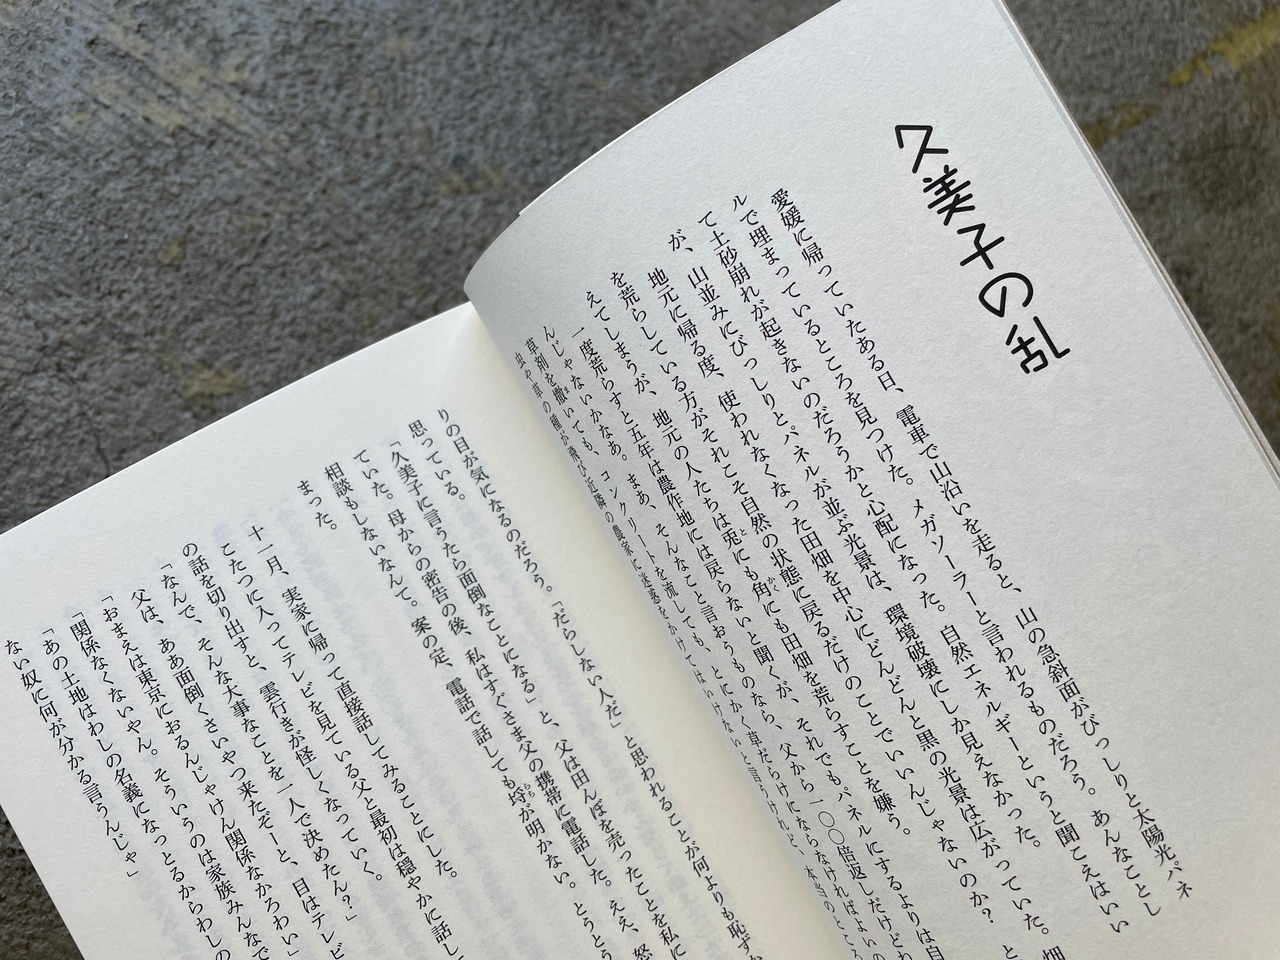 久美子の乱
愛媛に帰っていたある日、電車で山沿いを走ると、山の急斜面がびっしりと太陽光パネ
ルで埋まっているところを見つけた。メガソーラーと言われるものだろう。あんなことし
て土砂崩れが起きないのだろうかと心配になった。自然エネルギーというと聞こえはいい
が、山並みにびっしりとパネルが並ぶ光景は、環境破壊にしか見えなかった。
地元に帰る度、使われなくなった田畑を中心にどんどんと黒の光景は広がっていた。畑
を荒らしている方がそれこそ自然の状態に戻るだけのことでいいんじゃないのか？ と
えてしまうが、地元の人たちは兎にも角にも田畑を荒らすことを嫌う。
一度荒らすと五年は農作地には戻らないと聞くが、それでもパネルにするよりは自
んじゃないかなあ。まあ、そんなこと言おうものなら、父から一〇〇倍返しだけど
草剤を撒いても、コンクリートを流しても、とにかく草だらけにならなければよいの
虫や草の種が飛び近隣の農家に迷惑をかけてはいけないと言うけれど、本当のところ
りの目が気になるのだろう。「だらしない人だ」と思われることが何よりも恥ずか
思っている。
「久美子に言うたら面倒なことになる」と、父は田んぼを売ったことを私に
ていた。母からの密告の後、私はすぐさま父の携帯に電話した。ええ、怒
相談もしないなんて。案の定、電話で話しても埒が明かない。とうとう
まった。
十一月、実家に帰って直接話してみることにした。
こたつに入ってテレビを見ている父と最初は穏やかに話し
の話を切り出すと、雲行きが怪しくなっていく。
「なんで、そんな大事なことを一人で決めたん？」
父は、ああ面倒くさいやつ来たぞーと、目はテレビ
「おまえは東京におるんじゃけん関係なかろわい」
「関係なくないやん。そういうのは家族みんなで
「あの土地はわしの名義になっとるからわしの
ない奴に何が分かる言うんじゃ」